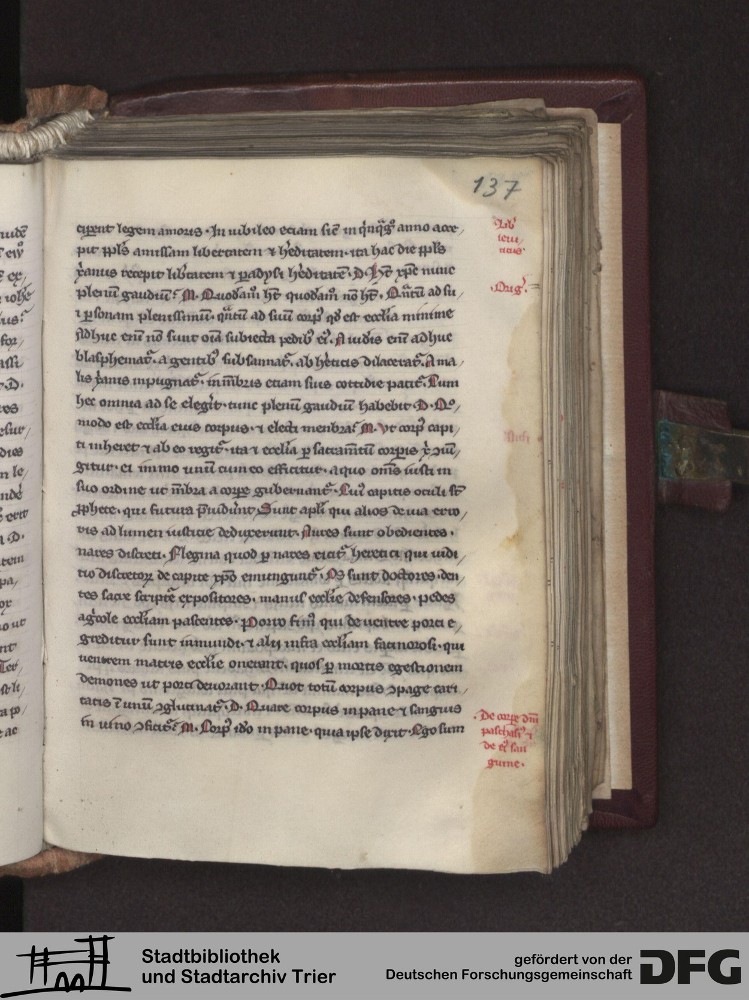 137
cip̄ent legem amoris. In iubileo eciam sic̄ in q̄nq̄gͦ anno acce/
pit ppl̄s amissam libertatem ⁊ h̄editatem. ita hac die ppl̄s
xp̄ianus recepit lib̄tatem ⁊ ꝑadysi h̄editatē. D. H̄t xp̄c nunc
plenū gaudiū? M. Quodam̄ h̄t quodam̄ nō h̄t. Qn̄tū ad su/
ā ꝑsonam plenissimū. qn̄tū ad suū corpꝰ qd̓ est eccl̄ia minime
Adhuc enī nō sunt oīa subiecta pedibꝰ eiꝰ. A iudeis enī adhuc
blasphemat̄. a gentibꝰ subsannat̄. ab h̄eticis dilacerat̄. A ma/
lis xp̄ianis inpugnat̄. in mēbris eciam suis cottidie patit̄. Cum
hec omnia ad se eleḡit. tunc plenū gaudiū habebit. D. Qͦ/
modo est eccl̄ia eius corpus. ⁊ electi menbra? M. Vt corpꝰ capi/
ti inheret ⁊ ab eo regit̄. ita ⁊ eccl̄ia ꝑ sacramtū corꝑis xp̄i ꝯiū/
gitur. ei immo unū cum eo efficitur. a quo om̄s iusti in
suo ordine ut mēbra a corꝑe gubernant̄. Cuiꝰ capitis oculi st̄
ꝓphete. qui futura p̄uidūnt. Sunt apl̄i qui alios de uia erro/
ris ad lumen iusticie deduxerunt. Aures sunt obedientes.
nares discreti. Flegma quod ꝑ nares eicit̄ heretici qui iudi/
tio discretoꝝ de capite xp̄o emungunt̄. Os sunt doctores. den/
tes sacre scripte expositores. manus eccl̄ie defensores. pedes
ag̓cole eccl̄iam pascentes. Porro fimꝰ qui de uentre porci e/
greditur sunt inmundi. ⁊ alij infra eccl̄iam facinorosi. qui
uentrem matris eccl̄ie onerant. quos ꝑ mortis egestionem
demones ut porci deuorant. Quot totū corpus ꝯpage cari/
tatis ī unū ꝯglutinat̄. D. Quare corpus in pane ⁊ sanguis
in uino ꝯficit̄? M. Corpꝰ ido in pane. quia ipse dixit. Ego sum
.Orig̓.
.De corꝑe dn̄i
paschasiꝰ ⁊
de eiꝰ san
guine.
Stadtbibliothek
und Stadtarchiv Trier
gefördert von der
Deutschen Forschungsgemeinschaft
DFG